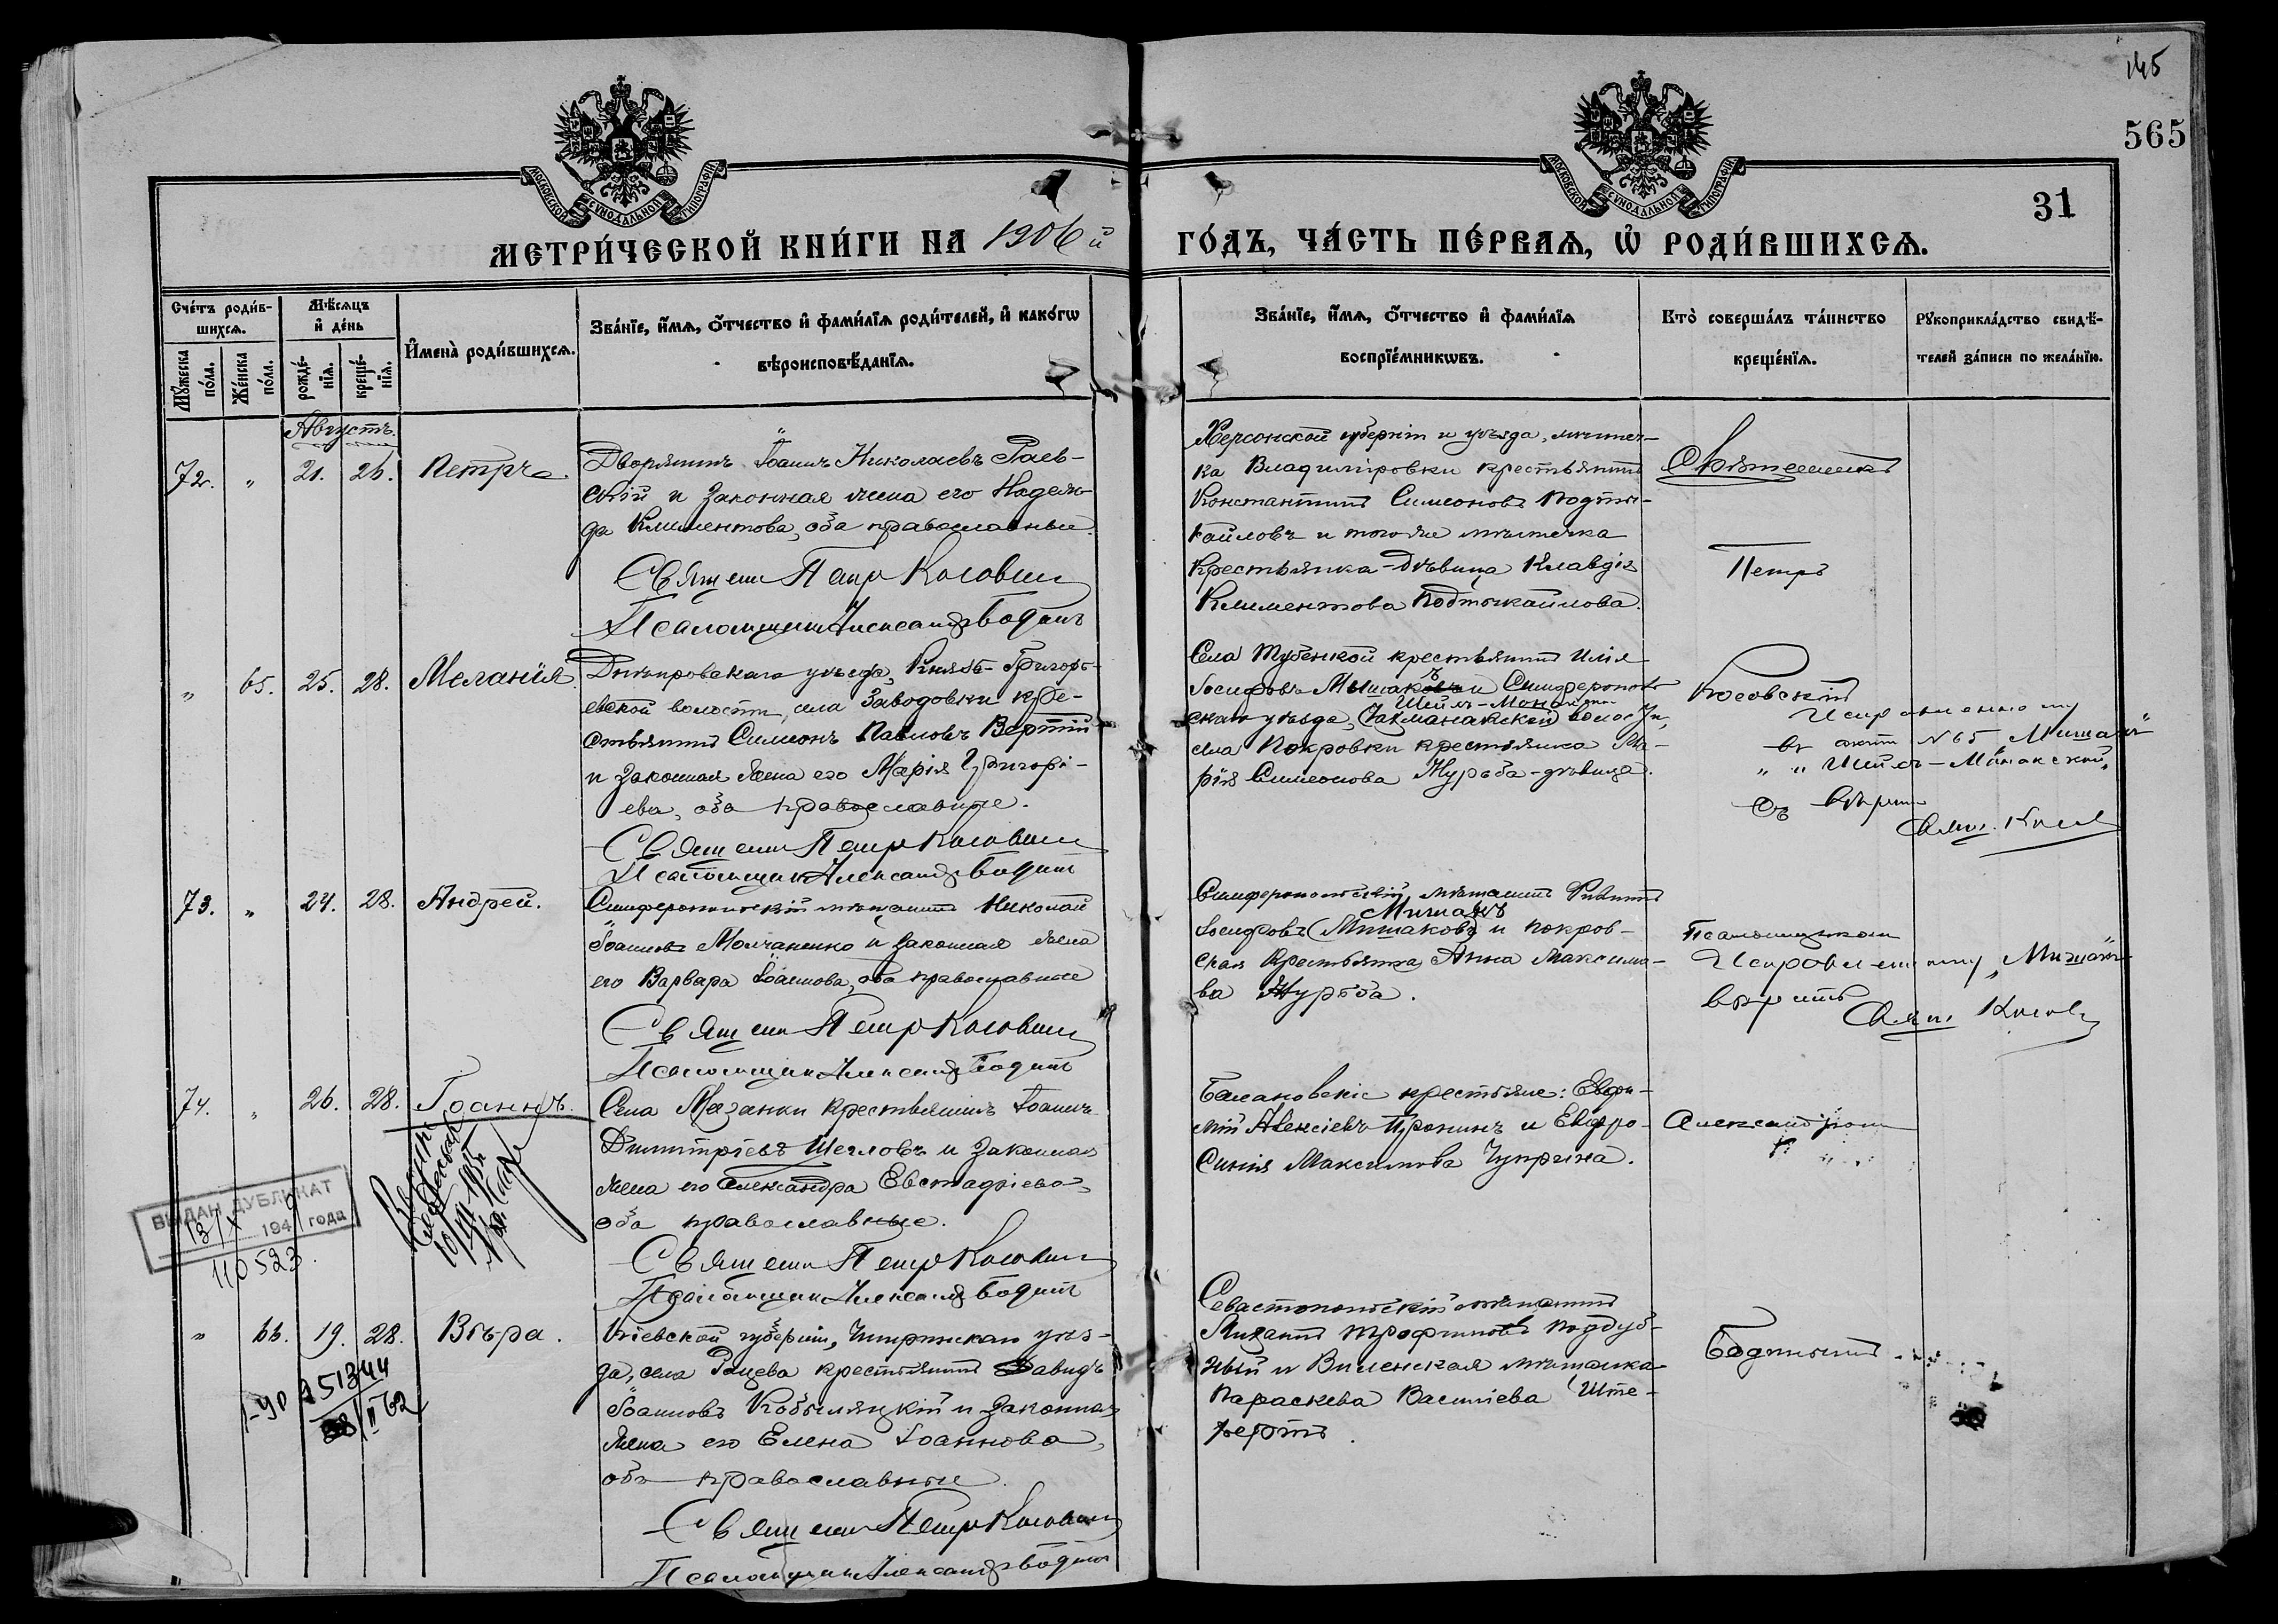 145
565
31
МОСКОВСКОЙ СУНОДАЛЬНОЙ ТИПОГРАФІИ
МОСКОВСКОЙ СУНОДАЛЬНОЙ ТИПОГРАФІИ
МЕТРИ́ЧЕСКОЙ КНИ́ГИ НА 1906 й
ГО́ДЪ, ЧА́СТЬ ПЕ́РВАѦ, Ѽ РОДИ́ВШИХСѦ.
Сче́тъ роди́в-
шихсѧ.
Мѣ́сѧцъ
и҆ де́нь
Мꙋ́жеска
по́ла.
Же́нска
по́ла.
рожде́-
нїѧ.
креще́-
нїѧ.
И҆мена̀ роди́вшихсѧ.
Зва́нїе, и҆́мѧ, ѻ҆́тчество и҆ фами́лїѧ роди́телей, и҆ како́гѡ
вѣроисповѣ́данїѧ.
Зва́нїе, и҆́мѧ, ѻ҆́тчество и҆ фами́лїѧ
воспрїе́мникѡвъ.
Кто̀ соверша́лъ та́инство
креще́нїѧ.
Рꙋкоприкла́дство свидѣ́-
телей за́писи по жела́нїю.
Августъ.
72. " 21. 26. Петръ
Дворянинъ Іоаннъ Николаевъ Раев-
скій и законная жена его Надеж-
да Климентова, оба православные
Священ Петръ Косовскій
Псаломщикъ Александръ Бодинъ
Херсонской губерніи и уѣзда, мѣстеч-
ка Владиміровки крестьянинъ
Константинъ Симеоновъ Подты-
кайловъ и того же мѣстечка
крестьянка-дѣвица Клавдія
Климентова Подтыкайлова.
Священникъ
Петръ
" 65. 25. 28. Меланія.
Днѣпровскаго уѣзда, Князь-Григорь-
евской волости, села Заводовки кре-
стьянинъ Симеонъ Павловъ Вертій
и законная жена его Марія Григорі-
ева, оба православные.
Священ Петръ Косовскій
Псаломщикъ Александръ Бодинъ
Села крестьянинъ Илія
Іосифовъ и Симферополь-
Шейхъ-Монакской
скаго уѣзда, волости,
села Покровки крестьянка Ма-
рія Симеонова Журьба-дѣвица.
Косовскій
Исправленному
въ актѣ №65 „Мишакъ"
" " Шейхъ-Монакской"
вѣрить
Свящ. Косов
73. " 24. 28. Андрей.
Симферопольскій мѣщанинъ Николай
Іоанновъ Молчаненко и законная жена
его Варвара Іоаннова, оба православные
Священ Петръ Косовскій
Псаломщикъ Александръ Бодинъ
Симферопольскій мѣщанинъ
Мишакъ
Іосифовъ (Мишаковъ) и покров-
ская крестьянка Анна Максимо-
ва Журьба.
Псаломщикомъ
Исправленному „Мишакъ"
вѣрить
Свящ. Косов
74. " 26. 28. Іоаннъ.
Села Мазанки крестьянинъ Іоаннъ
Димитріевъ Шегловъ и законная
жена его Александра Евстафіева,
оба православные.
Священ Петръ Косовскій
Псаломщикъ Александръ Бодинъ
крестьяне: Евфи-
мій Алексіевъ Пронинъ и Евфро-
синія Максимова Чуприна.
Александромъ
ВЫДАН ДУБЛИКАТ
13/X 194 года
110523.
" 66. 19. 28. Вѣра.
Кіевской губерніи, Чигиринскаго уѣз-
да, села крестьянинъ Давидъ
Іоанновъ Кобыляцкій и законная
жена его Елена Іоаннова,
оба православные.
Священ Петръ Косовскій
Псаломщикъ Александръ Бодинъ
Севастопольскій мѣщанинъ
Трофимовъ Поддуб-
ный и Виленская мѣщанка
Параскева Василіева
Бодинымъ
251344
II 62